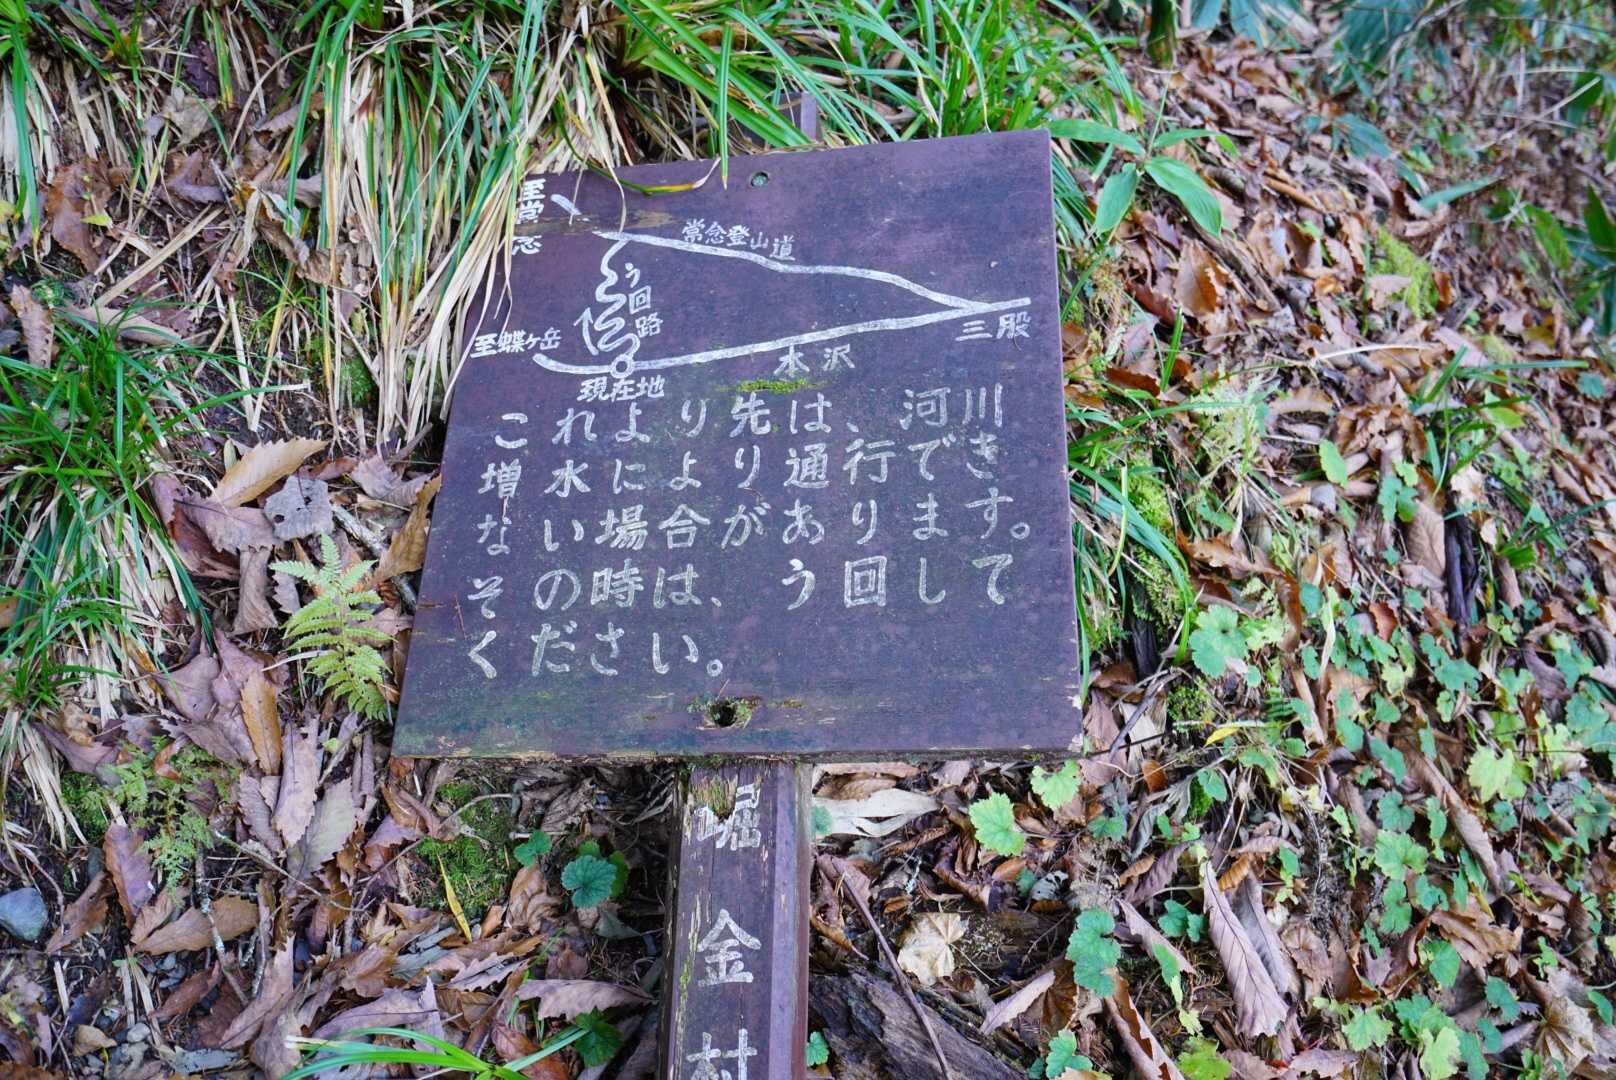 至常念
常念登山道
う回路
至蝶ヶ岳
三股
本沢
現在地
これより先は、河川
増水により通行でき
ない場合があります。
その時は、う回して
ください。
堀金村